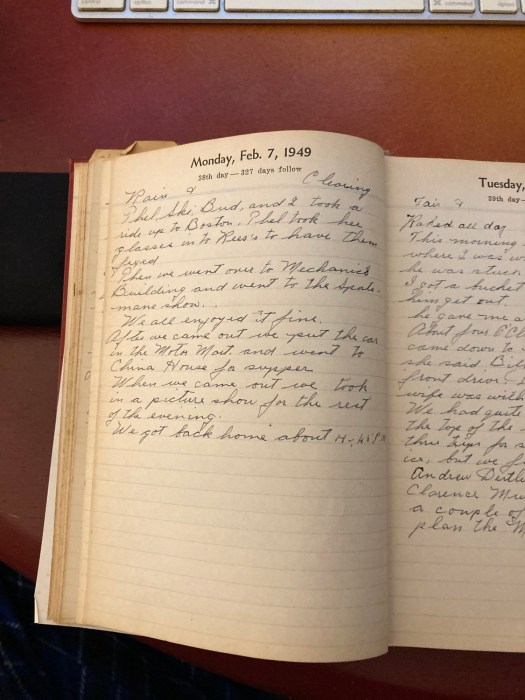 control
option
command
command
option
Monday, Feb. 7, 1949
38th day — 327 days follow
Rain & Clearing
Phel, Ski, Bud, and I took a
ride up to Boston. Phel took her
glasses in to to have them
fixed
Then we went over to Mechanics
Building and went to the Sports-
mans show...
We all enjoyed it fine.
After we came out we put the car
in the Motor Mart and went to
China House for supper
When we came out we took
in a picture show for the rest
of the evening.
We got back home about
Tuesday,
39th day —
Fair &
Naked all day
This morning
where I was w
he was stuck
I got a bucket
him get out.
he gave me a
About four P
came down to
she said Bill
front drive
wife was with
We had quite
the top of the
three trips for s
ice, but we f
Andrew
Clarence Mu
a couple of
plan the M